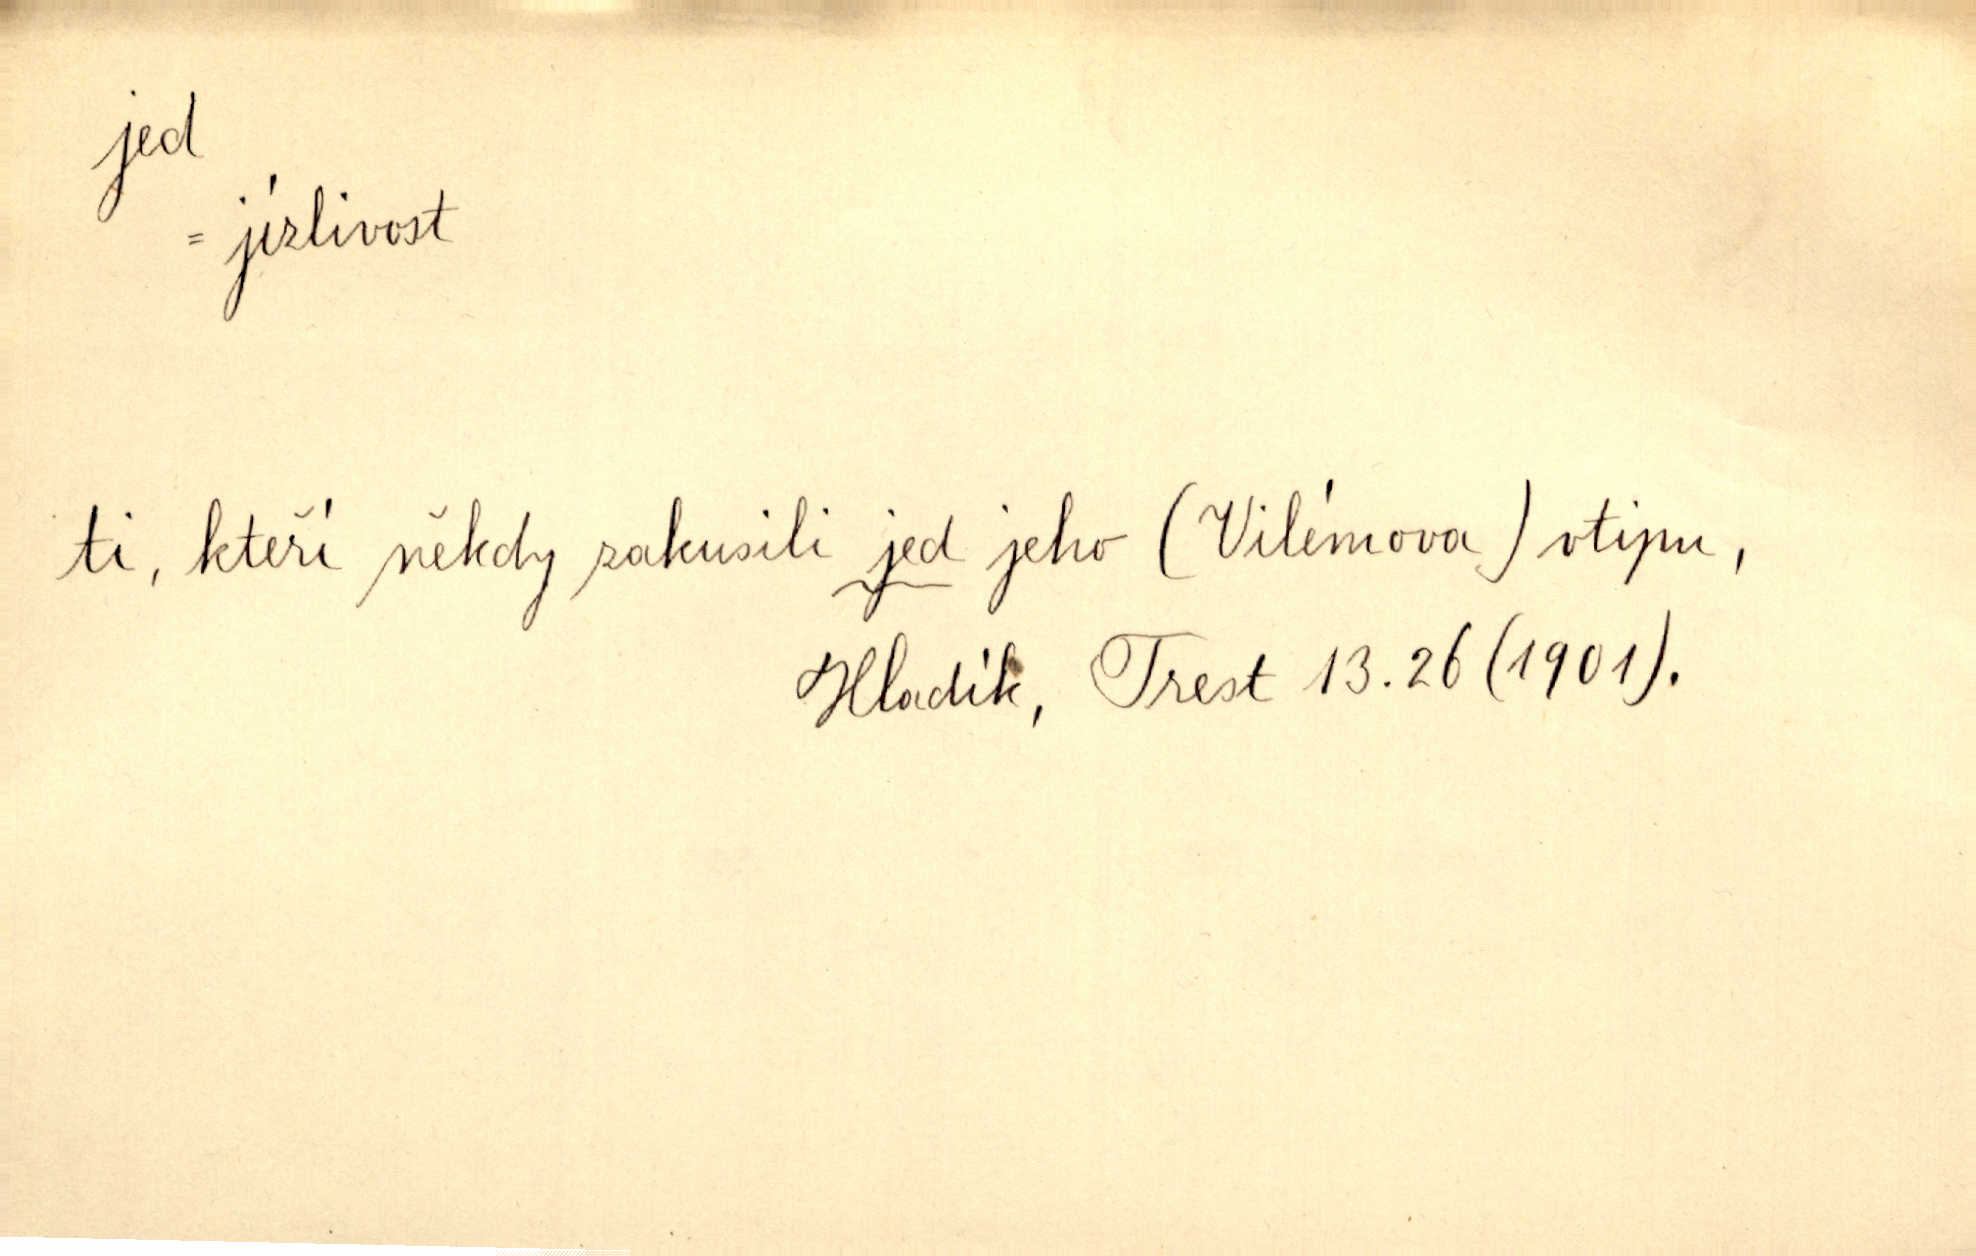 jed
= jízlivost
ti, kteří někdy zakusili jed jeho (Vilémova) vtipu,
Hladík, Trest 13.26 (1901).